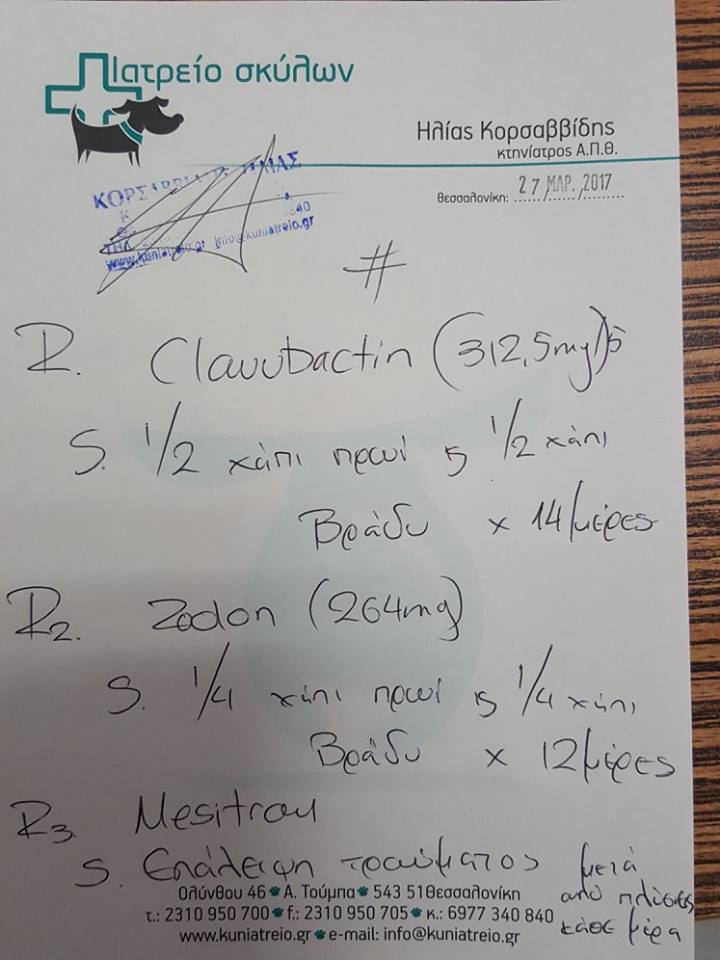 Ιατρείο σκύλων
Ηλίας Κορσαββίδης
κτηνίατρος Α.Π.Θ.
Θεσσαλονίκη: 27 ΜΑΡ. 2017
www.kuniatreio.gr info@kuniatreio.gr
#
R. Clavubactin (312,5mg)
S. 1/2 χάπι πρωί ϗ 1/2 χάπι
Βράδυ x 14 μέρες
R2. Zodon (264mg)
S. 1/4 χάπι πρωί ϗ 1/4 χάπι
Βράδυ x 12 μέρες
R3. Mesitran
S. Επάλειψη τραύματος μετά
από πλύσεις
κάθε μέρα
Ολύνθου 46 Α. Τούμπα 543 51 Θεσσαλονίκη
τ.: 2310 950 700 f.: 2310 950 705 κ.: 6977 340 840
www.kuniatreio.gr e-mail: info@kuniatreio.gr